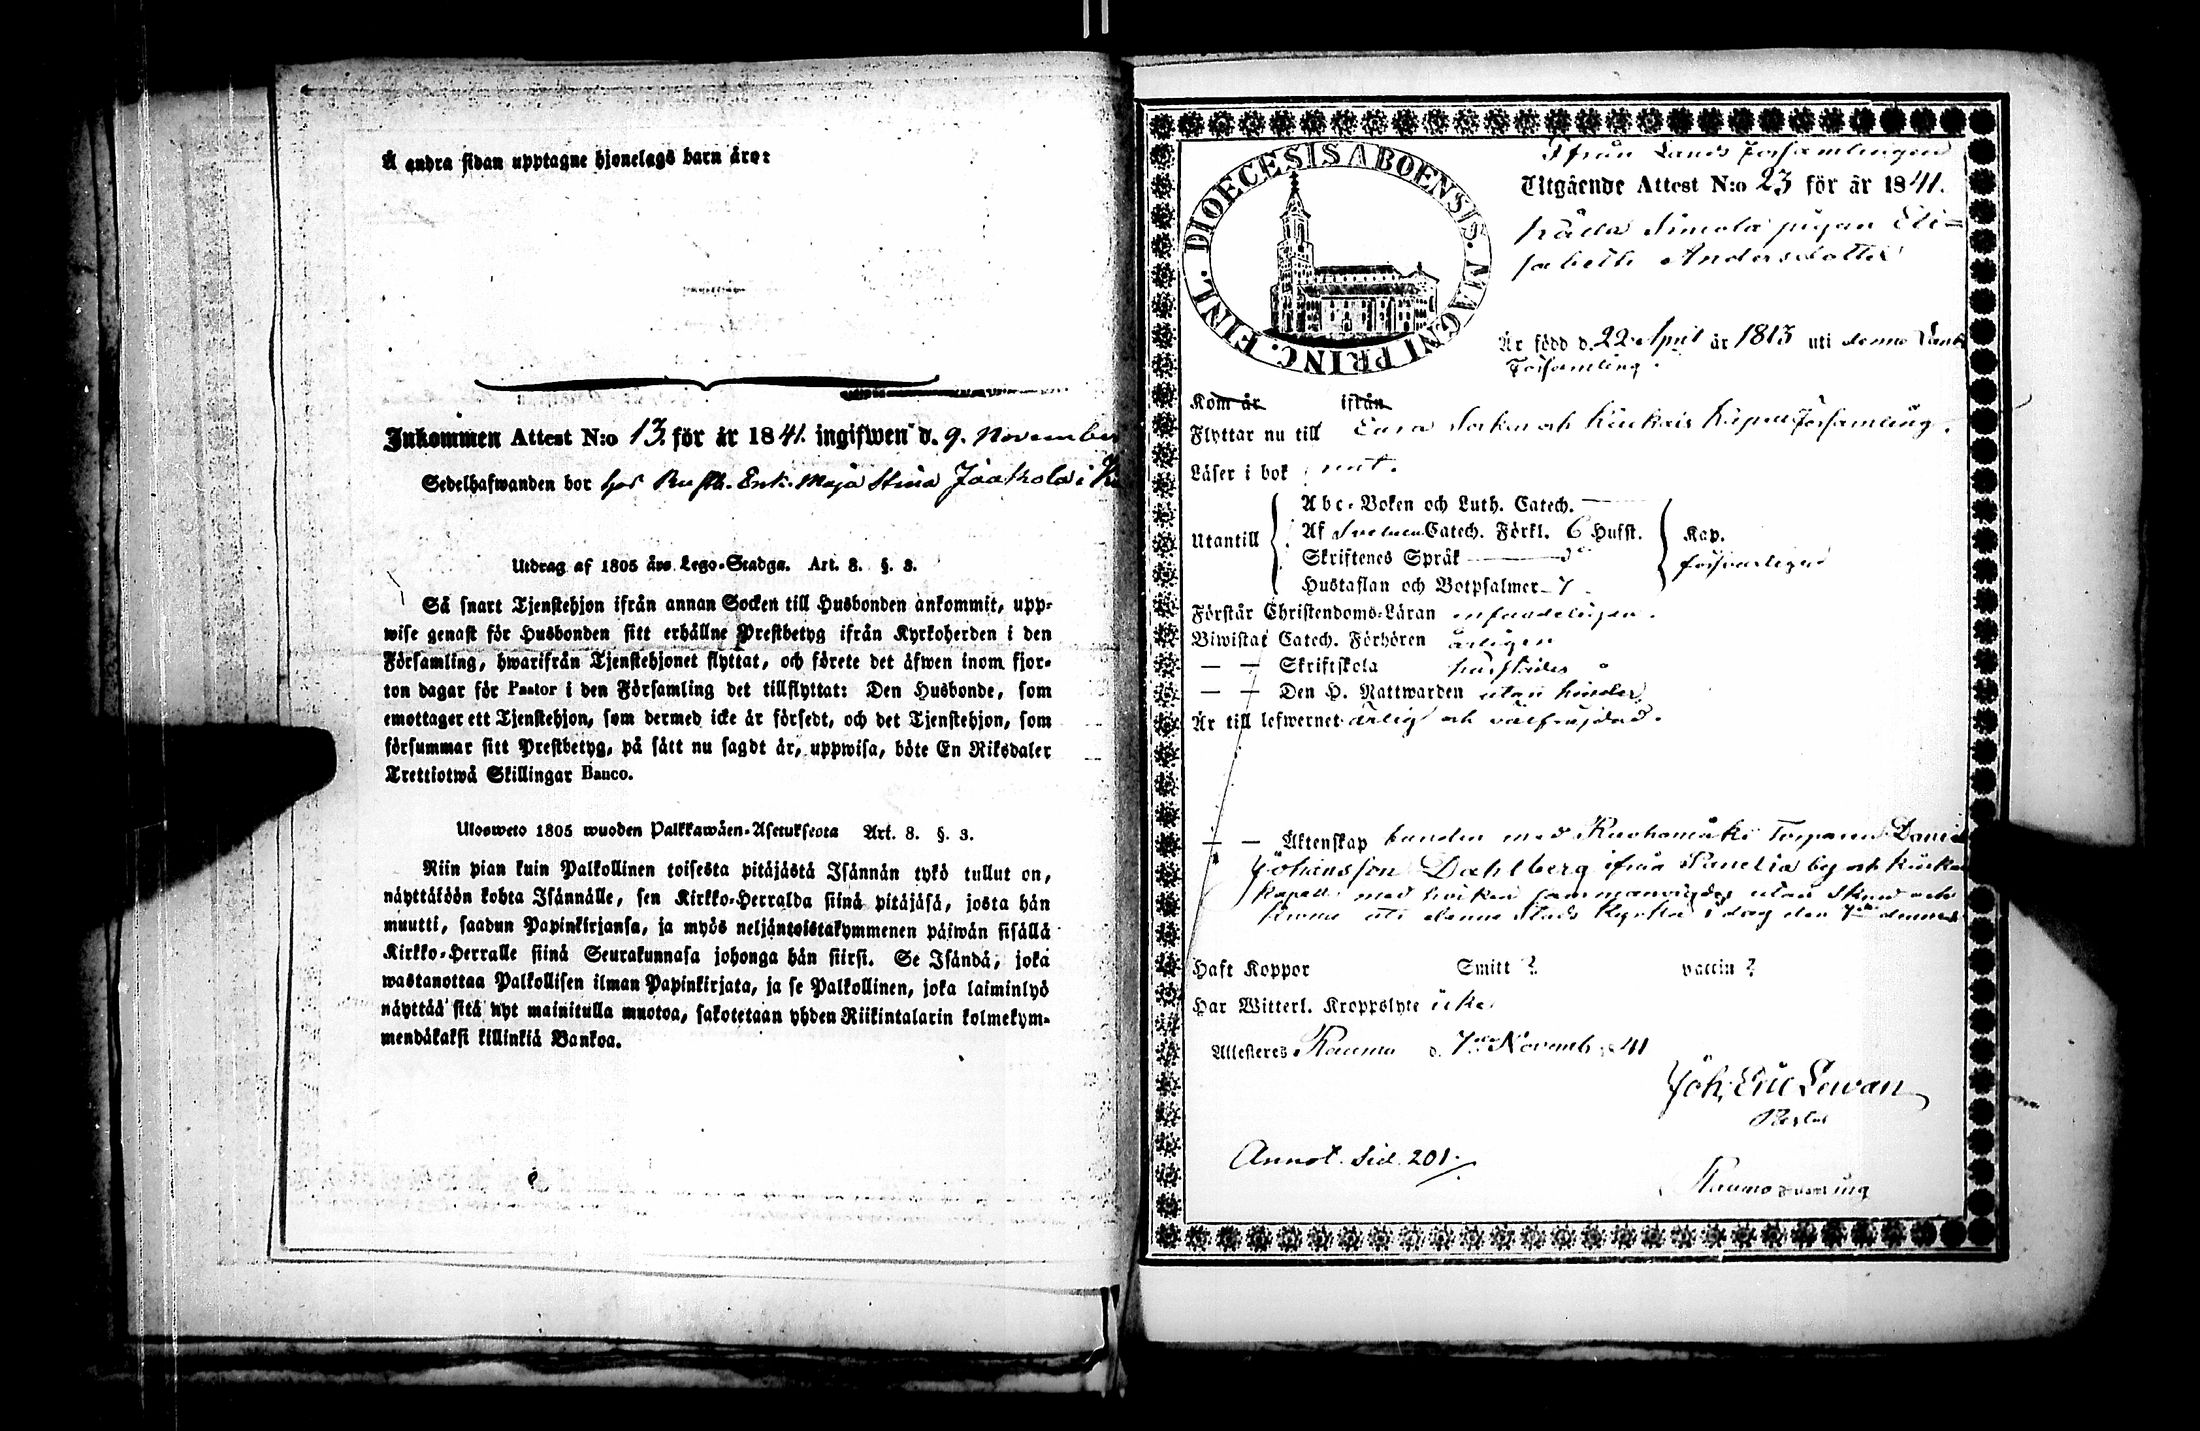 Å andra sidan upptagne hjonelags barn äro:
Inkommen Attest N:o 13. för år 1841. ingifwen d. 9. November
Sedelhafwanden bor hos Rusth. Enk. Maja Stina Jaakola i
Utdrag af 1805 års Lego-Stadga. Art. 8. §. 3.
Så snart Tjenstehjon ifrån annan Socken till Husbonden ankommit, upp-
wise genast för Husbonden sitt erhållne Prestbetyg ifrån Kyrkoherden i den
Församling, hwarifrån Tjenstehjonet flyttat, och förete det äfwen inom fjor-
ton dagar för Pastor i den Församling det tillflyttat: Den Husbonde, som
emottager ett Tjenstehjon, som dermed icke är försedt, och det Tjenstehjon, som
försummar sitt Prestbetyg, på sätt nu sagdt är, uppwisa, böte En Riksdaler
Trettiotwå Skillingar Banco.
Ulosweto 1805 wuoden Palkkawäen-Asetuksesta Art. 8. §. 3.
Niin pian kuin Palkollinen toisesta pitäjästä Isännän tykö tullut on,
näyttäköön kohta Isännälle, sen Kirkko-Herralda siinä pitäjäsä, josta hän
muutti, saadun Papinkirjansa, ja myös neljäntoistakymmenen päiwän sisällä
Kirkko-Herralle siinä Seurakunnasa johonga hän siirsi. Se Isändä, joka
wastanottaa Palkollisen ilman Papinkirjata, ja se Palkollinen, joka laiminlyö
näyttää sitä nyt mainitulla muotoa, sakotetaan yhden Riikintalarin kolmekym-
mendäkaksi killinkiä Bankoa.
DIOECESIS ABOENSIS. MAGNI PRINC. FINL.
Ifrån Lands Församlingen
Utgående Attest N:o 23 för år 1841.
Simola pigan Eli-
sabeth Andersdotter
Är född d. 22 April år 1813 uti denne Lands
Församling.
Kom år ifrån
Flyttar nu till Eura Socken och Kiukais Kapell församling.
Läser i bok nat.
Utantill
Abc-Boken och Luth. Catech.
Af Svebun Catech. Förkl. 6 Hufst.
Skriftenes Språk
Hustaflan och Botpsalmer 7
Kap.
försvarligen
Förstår Christendoms-Läran enfaldeligen.
Biwistat Catech. Förhören årligen
— — Skriftskola
— — Den H. Nattwarden utan hinder
Är till lefwernet ärlig och välfräjdad.
— — Äktenskap bunden med Ruohomäki Torparen Daniel
Johansson Dahlberg ifrån Panelia by och Kiukais
Kapell med hvilken sammanvigdes utan
uti denne Stads Kyrka i dag den 7de dennes
Haft Koppor Smitt ? vaccin ?
Har Witterl. Kroppslyte icke
Attesteras Raumo d. 7de Novemb. 1841
Joh. Eric Lewan
Pastor
Annot. Sid. 201.